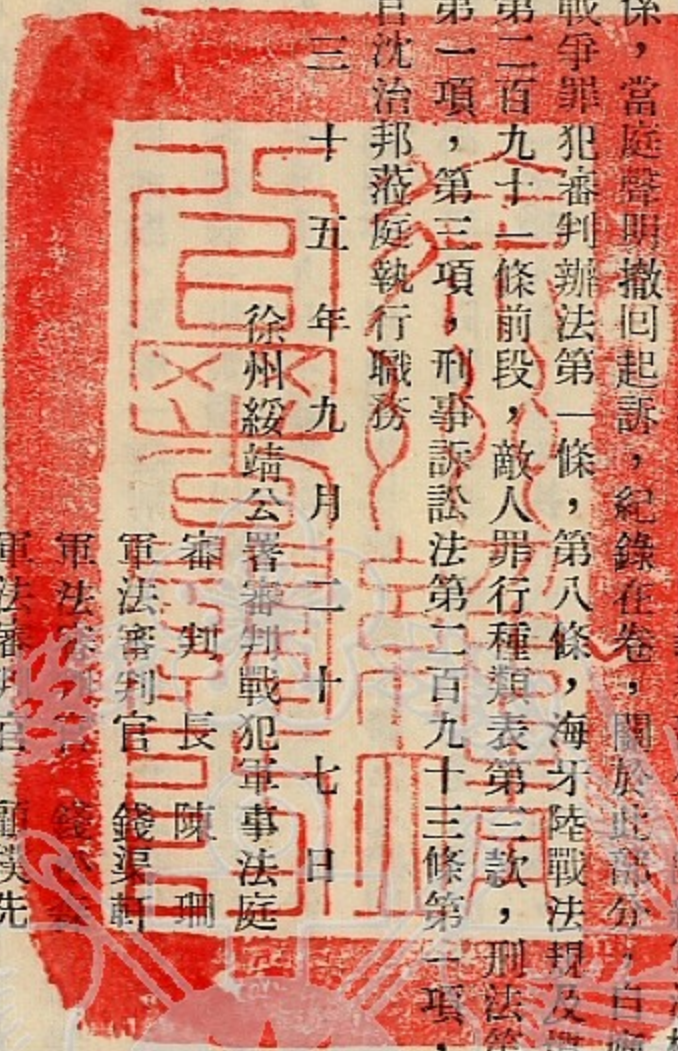 係，當庭聲明撤回起訴，紀錄在卷，關於此部分，自
戰爭罪犯審判辦法第一條，第八條，海牙陸戰法規及
第二百九十一條前段，敵人罪行種類表第三款，刑法第
第一項，第三項，刑事訴訟法第二百九十三條第一項，
官沈治邦蒞庭執行職務
三十五年九月二十七日
徐州綏靖公署審判戰犯軍事法庭
審判長 陳珊
軍法審判官 錢渠軒
軍法審判官
軍法審判官 顧樸先